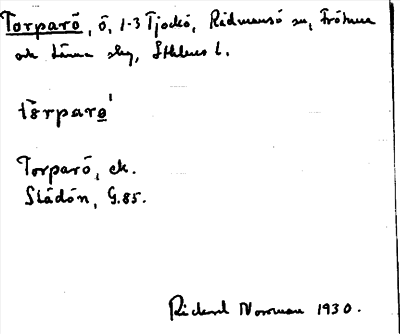 Torparö, ö, 1-3 Tjockö, Rådmansö sn, Frötuna
och Länna skg, Sthlms l.
tårparo'
Torparö, ek.
Slådön, G.85.
Rickard Norrman 1930.